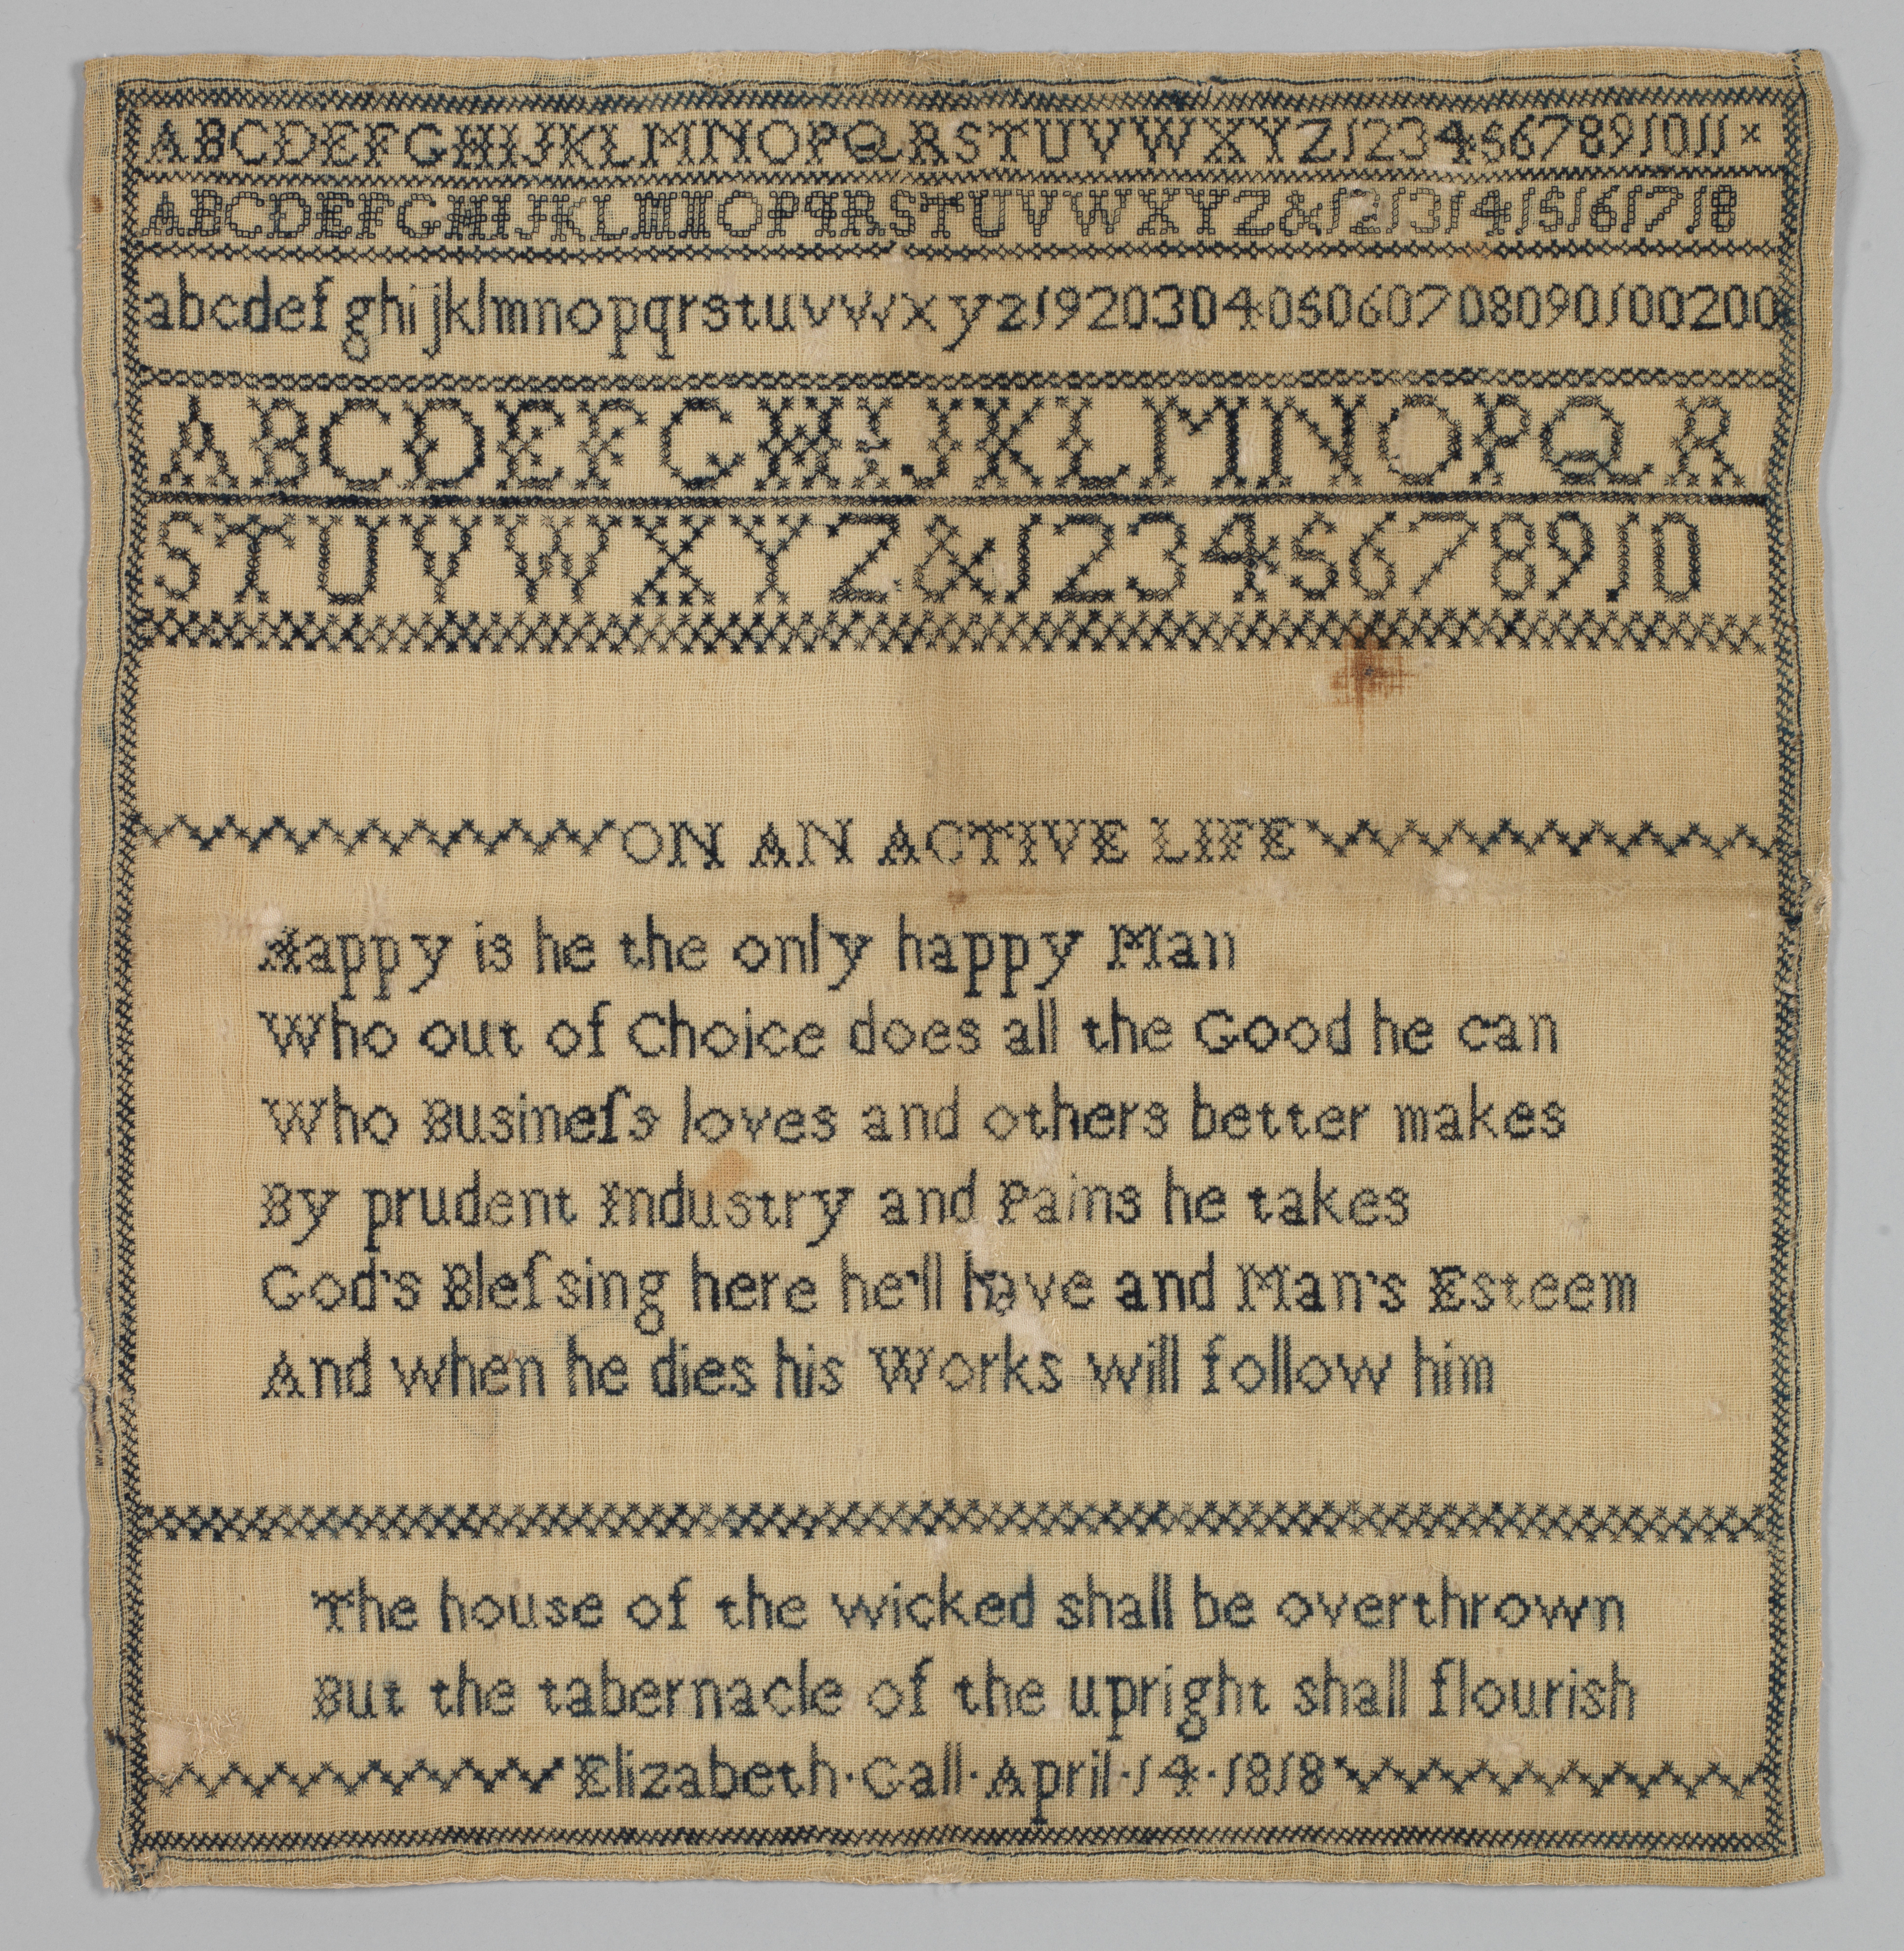 ABCDEFGHIJKLMNOPQRSTUVWXYZ1234567891011×
ABCDEFGHIJKLMNOPqRSTUVWXYZ&12131415161718
abcdefghijklmnopqrstuvwxyz192030405060708090100200
ABCDEFGHIJKLMNOPQR
STUVWXYZ&12345678910
ON AN ACTIVE LIFE
Happy is he the only happy Man
Who out of Choice does all the Good he can
Who Busineſs loves and others better makes
By prudent Industry and Pains he takes
God's Bleſsing here he'll have and Man's Esteem
And when he dies his Works will follow him
The house of the wicked shall be overthrown
But the tabernacle of the upright shall flourish
Elizabeth·Call·April·14·1818